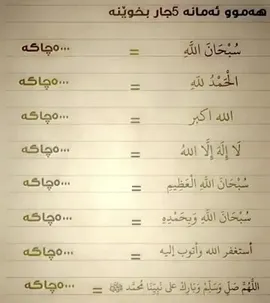 هەموو ئەمانە 5جار بخوێنە
سُبْحَانَ اللَّهِ = ٥٠٠٠چاکە
الْحَمْدُ لِلَّهِ = ٥٠٠٠چاکە
الله اكبر = ٥٠٠٠چاکە
لَا إِلَهَ إِلَّا اللهُ = ٥٠٠٠چاکە
سُبْحَانَ اللَّهِ الْعَظِيمِ = ٥٠٠٠چاکە
سُبْحَانَ اللَّهِ وَبِحَمْدِهِ = ٥٠٠٠چاکە
أستغفر الله وأتوب إليه = ٥٠٠٠چاکە
اللَّهُمَّ صَلِّ وَسَلِّمْ وَبَارِكْ عَلَى نَبِيِّنَا مُحَمَّد ﷺ = ٥٠٠٠چاکە